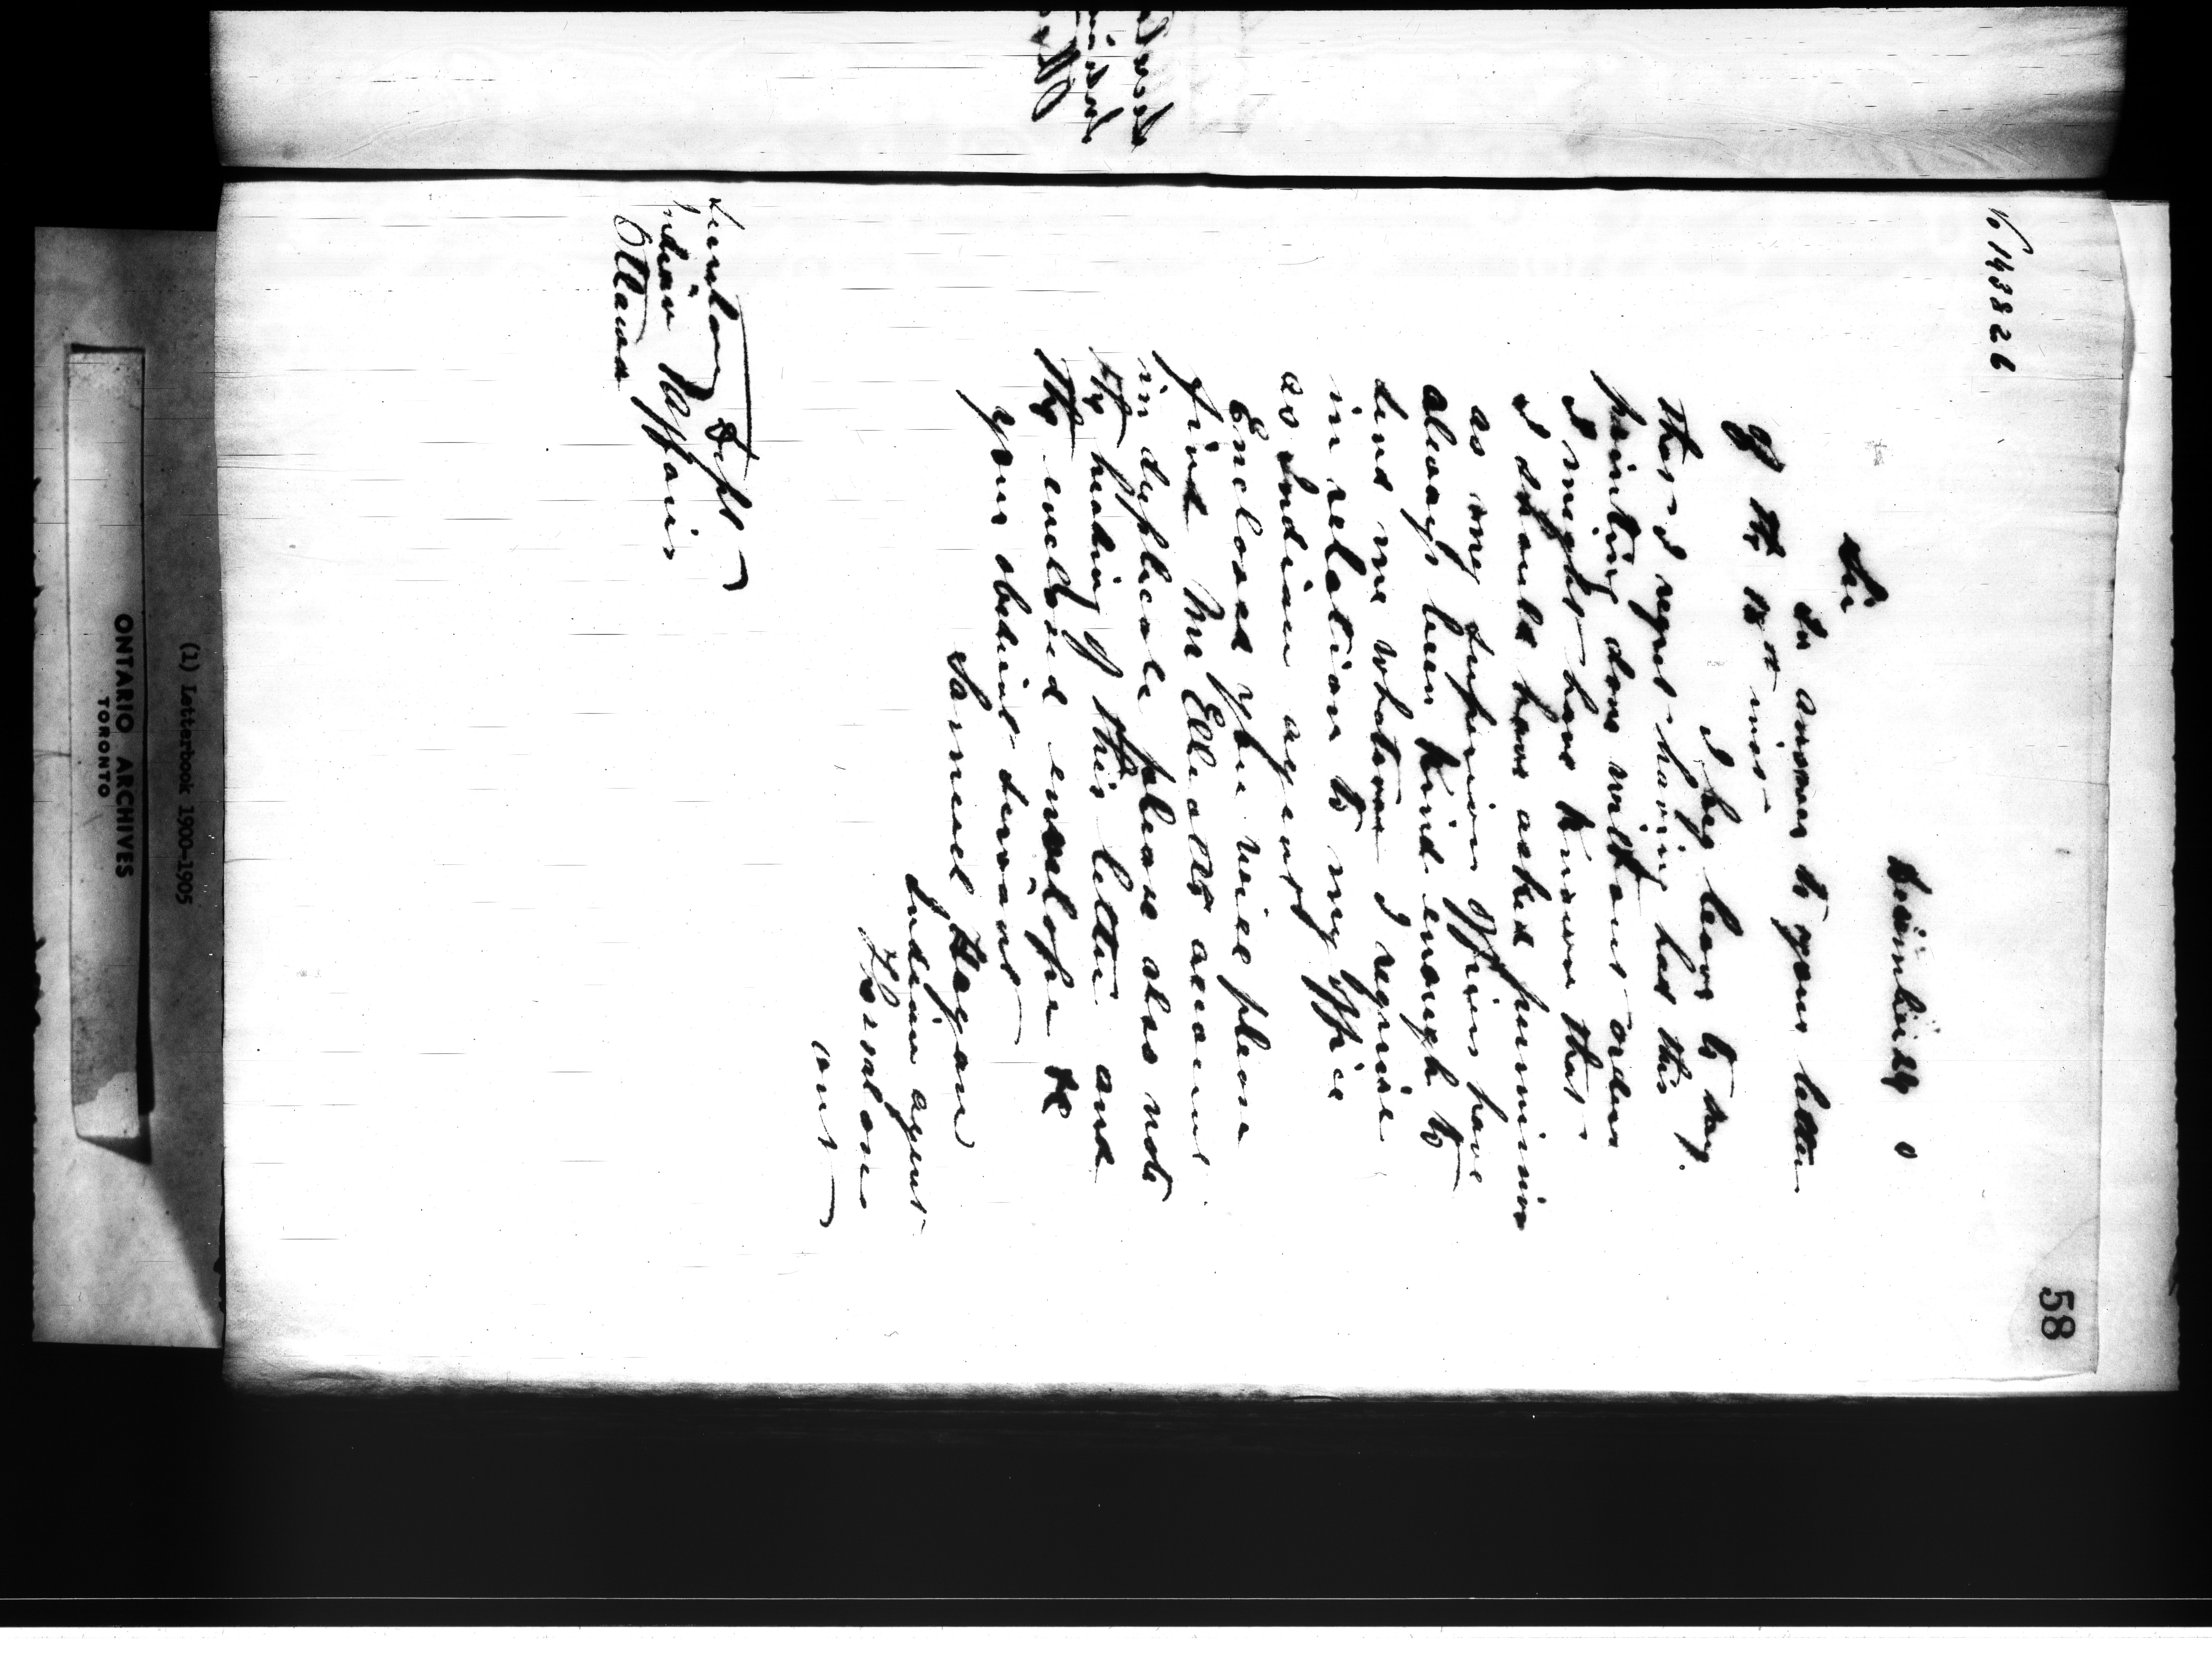 58
No 143826
December 29 0
Sir
In answer to your letter
of the 18th inst
I beg leave to say.
that I regret having had this
printing done without orders
I might have known that
I should have asked permission
as my superior officers have
always been kind enough to
send me whatever I require
in relation to my office
as Indian agent
Enclosed you will please
find McElleatts account
in duplicate please also note
the heading of this letter and
the enclosed envelope
your obedient servant
Samuel Hagan
Indian agent
Thessalon
Ont
Secretary Dept
Indian Affairs
Ottawa
(1) Letterbook 1900-1905
ONTARIO ARCHIVES
TORONTO